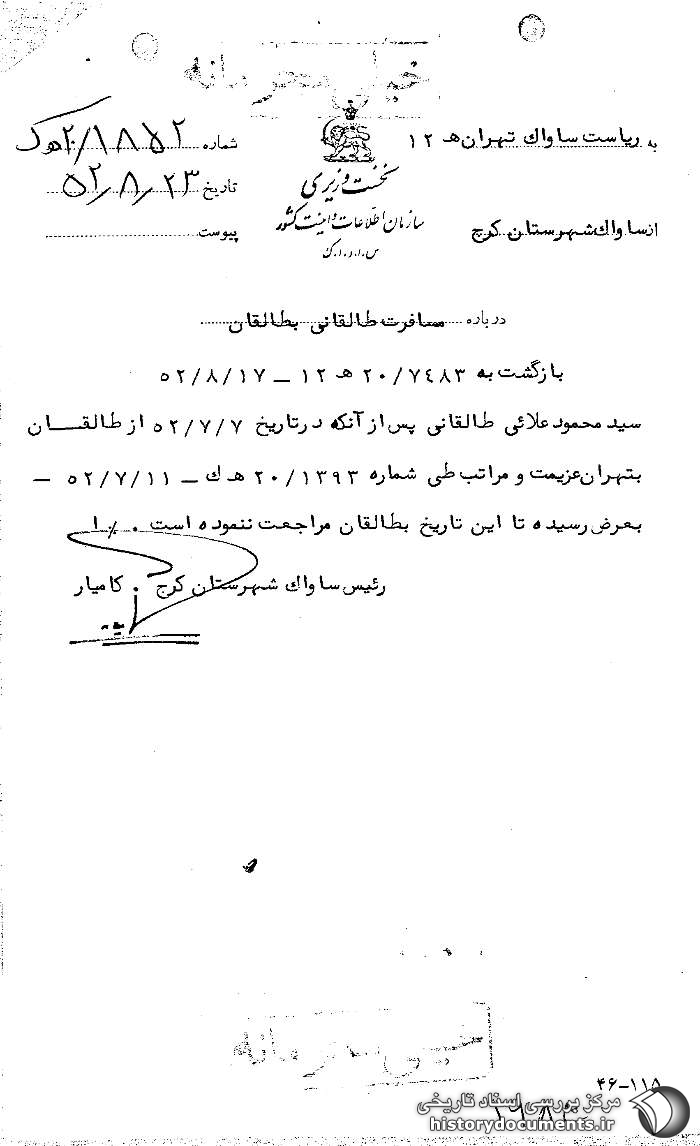 خیلی محرمانه
به ریاست ساواک تهران هـ ۱۲
شماره ۲۰/۱۸۵۲ هـ ک
نخست وزیری
تاریخ ۵۲/۸/۲۳
سازمان اطلاعات و امنیت کشور
از ساواک شهرستان کرج
پیوست
س.ا.و.ا.ک
درباره مسافرت طالقانی بطالقان
بازگشت به ۲۰/۷٤۸۳ هـ ۱۲ – ۵۲/۸/۱۷
سید محمود علائی طالقانی پس از آنکه در تاریخ ۵۲/۷/۷ از طالقان
بتهران عزیمت و مراتب طی شماره ۲۰/۱۳۹۳ هـ ك – ۵۲/۷/۱۱ –
بعرض رسیده تا این تاریخ بطالقان مراجعت ننموده است . ۱٪
رئیس ساواک شهرستان کرج . کامیار
خیلی محرمانه
۴۶-۱۱۸
مرکز بررسی اسناد تاریخی
historydocuments.ir